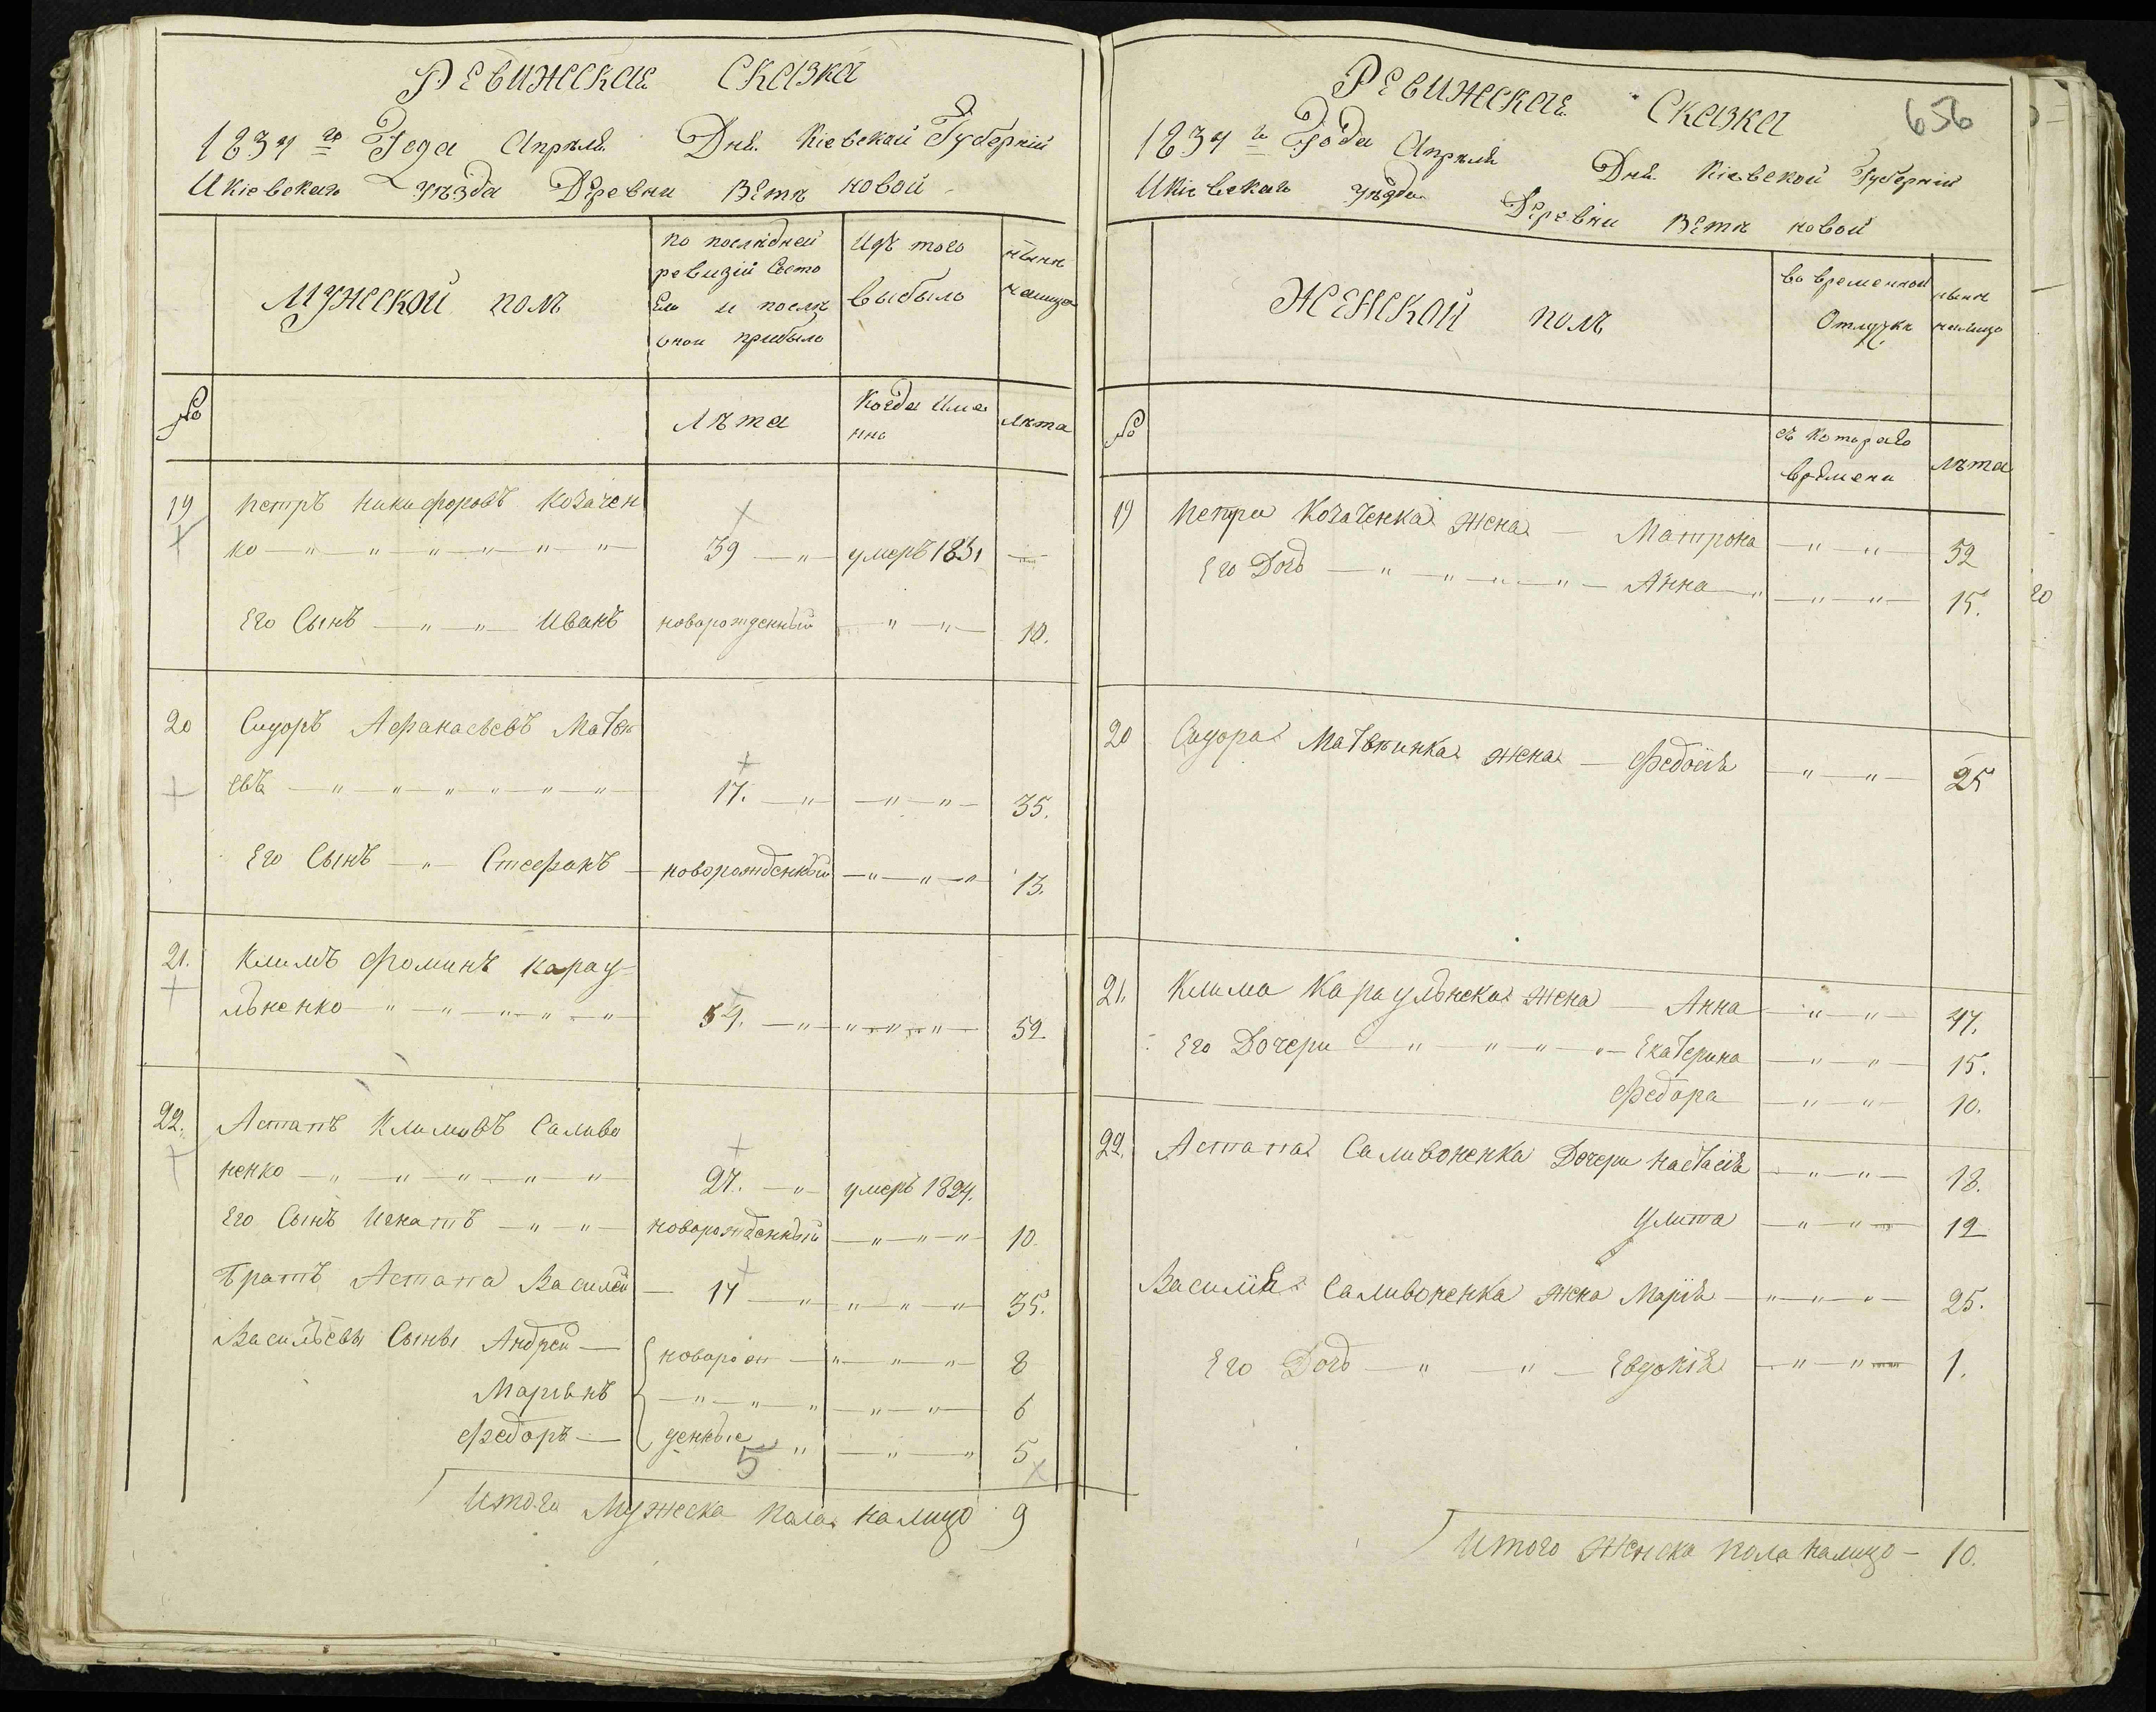 Ревижская Сказка
1834 го Года Апреля Дня Кіевской Губерніи
И Кіевскаго уѣзда Деревни Ветѣ новой
Мужской полъ
по послѣдней
ревизіи Состо
Ело и послѣ
оной прибыло
Изъ того
выбыло
нынѣ
налицо
№
Лѣта
Когда Име
нно
лѣта
19
Петръ Никифоровъ Козачен
ко — " — " — " — " — " — "
39 — "
умеръ 1831
—
Его Сынъ — " — " — Иванъ
новорожденный
— " — " —
10.
20
Сидоръ Афанасьевъ Матвѣ
евъ — " — " — " — " — " — "
17. — "
— " — " —
35.
Его Сынъ — " — Стефанъ
новорожденный
— " — " — "
13.
21.
Климъ Фоминъ Карау-
льненко — " — " — " — " — "
34. — "
" — " — " — " —
52
22.
Астапъ Климовъ Саливо
ненко — " — " — " — " — "
27. — "
умеръ 1824.
Его Сынъ Игнатъ — " — " —
новорожденный
— " — " — "
10
Братъ Астапа Василей —
17 — "
" — " — " —
35.
Васильевы Сыны Андрей —
новорож —
" — " — " —
8
Марьянъ
— " — " — "
— " — " —
6
Федоръ —
денные "
— " — "
5
5
Итого Мужеска пола налицо 9
656
Ревижская Сказка
1834 го Года Апреля Дня Кіевской Губерніи
И Кіевскаго уѣзда Деревни Ветѣ новой
Женской полъ
во временной
Отлучкѣ
нынѣ
налицо
№
съ Котораго
времени
лѣта
19
Петра Козаченка жена — Матрона
— " — " —
32
Его Дочь — " — " — " — " — Анна — "
— " — " —
15.
20
20
Сидора Матвѣинка жена — Федосія
— " — " —
25
21.
Клима Караульнска жена — Анна
— " — " —
47.
Его Дочери — " — " — " — " — Екатерина
— " — " —
15.
Федора
— " — " —
10.
22.
Астапа Саливоненка Дочери Настасія
— " — " —
18.
Улита
— " — " —
12
Василія Саливоненка жена Марія —
" — " — " —
25.
Его Дочь — " — " — Евдокія
— " — " —
1.
Итого женска пола налицо — 10.